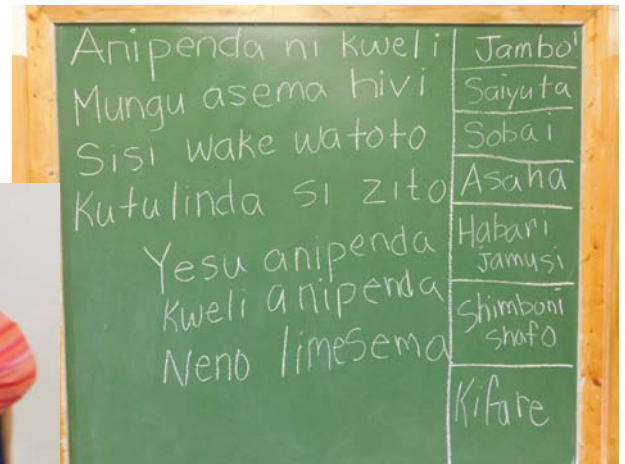 Anipenda ni kweli
Mungu asema hivi
Sisi wake watoto
Kutulinda si zito
Yesu anipenda
Kweli anipenda
Neno limesema
Jambo'
Saiyuta
Sobai
Asaha
Habari
Jamusi
Shimboni
Shafo
Kifare